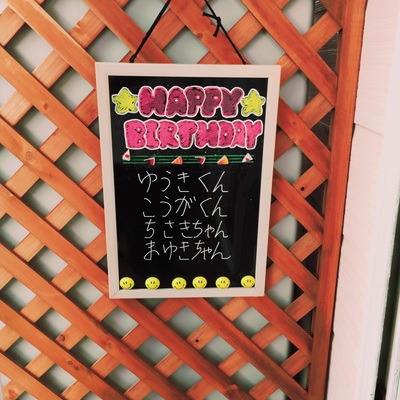 HAPPY
BIRTHDAY
ゆうきくん
こうがくん
ちさきちゃん
まゆきちゃん